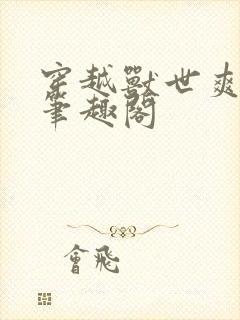 穿越獸世爽
筆趣閣
會飛